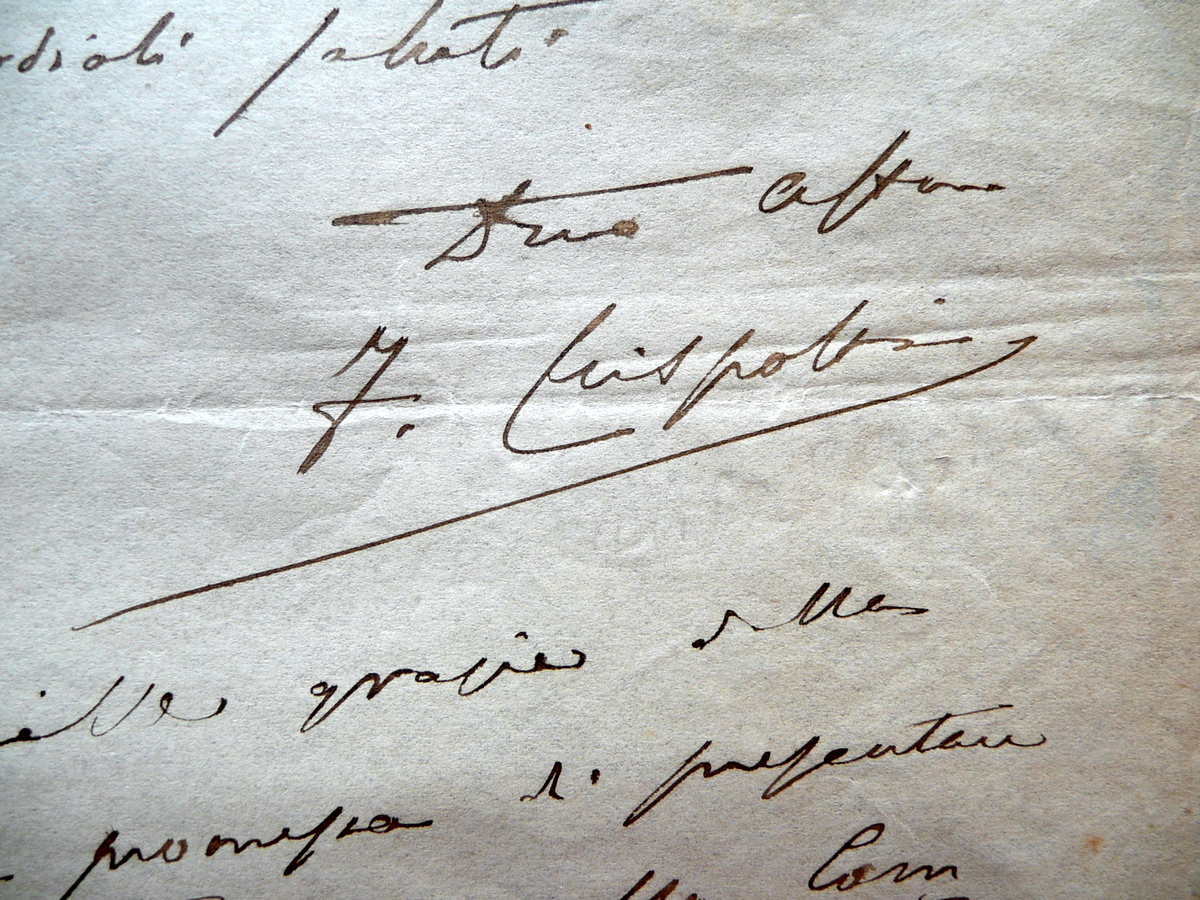 saluti
Devmo affmo
F. Crispolti
mille grazie della
promessa di presentare
Com